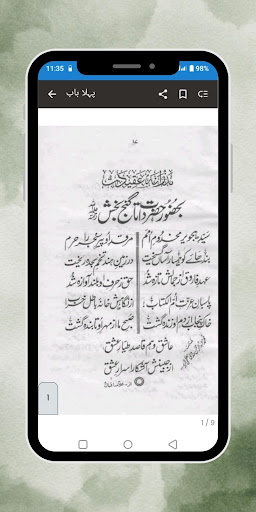 11:35 98%
پہلا باب
نذرانہ عقیدت
بحضور حضرت داتا گنج بخش
سید ہجویر مخدوم امم مرقد او پیر سنجر را حرم
بند ہائے کوہسار آساں گسیخت در زمین ہند تخم سجدہ ریخت
عہد فاروق از جمالش تازہ شد حق ز حرف او بلند آوازہ شد
پاسبان عزت ام الکتاب از نگاہش خانہ باطل خراب
خاک پنجاب از دم او زندہ گشت صبح ما از مہر او تابندہ گشت
عاشق و ہم قاصد طیار عشق
از جبینش آشکار اسرار عشق
۱
1 / 9